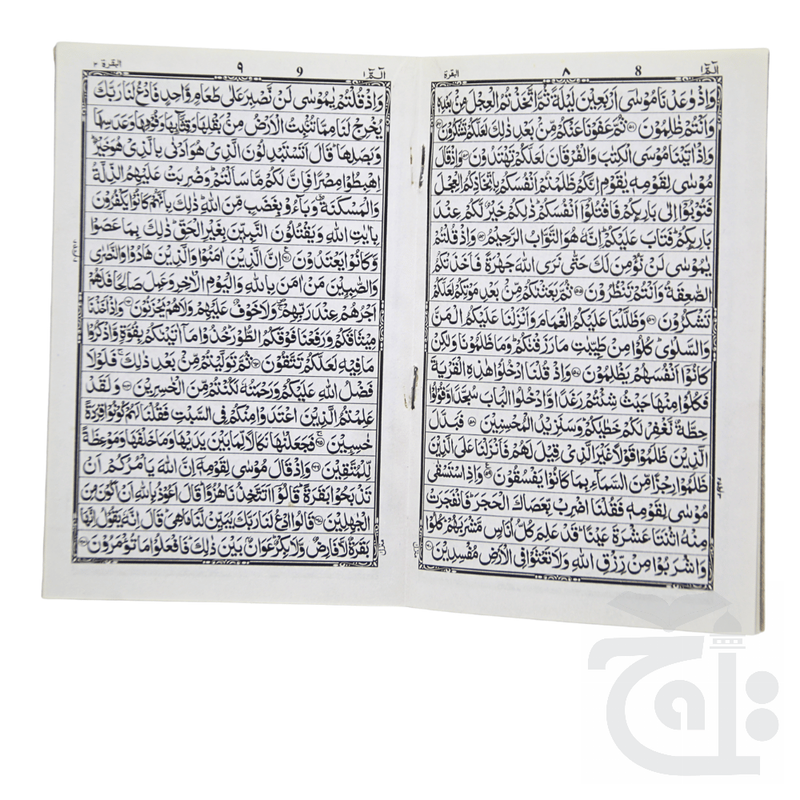 الٓمّٓ ١ ٨ 8 البقرة
وَاِذْ وٰعَدْنَا مُوْسٰٓى اَرْبَعِيْنَ لَيْلَةً ثُمَّ اتَّخَذْتُمُ الْعِجْلَ مِنْۢ بَعْدِهٖ
وَاَنْتُمْ ظٰلِمُوْنَ ۝٥١ ثُمَّ عَفَوْنَا عَنْكُمْ مِّنْۢ بَعْدِ ذٰلِكَ لَعَلَّكُمْ تَشْكُرُوْنَ ۝٥٢
وَاِذْ اٰتَيْنَا مُوْسَى الْكِتٰبَ وَالْفُرْقَانَ لَعَلَّكُمْ تَهْتَدُوْنَ ۝٥٣ وَاِذْ قَالَ
مُوْسٰى لِقَوْمِهٖ يٰقَوْمِ اِنَّكُمْ ظَلَمْتُمْ اَنْفُسَكُمْ بِاتِّخَاذِكُمُ الْعِجْلَ
فَتُوْبُوْٓا اِلٰى بَارِئِكُمْ فَاقْتُلُوْٓا اَنْفُسَكُمْ ذٰلِكُمْ خَيْرٌ لَّكُمْ عِنْدَ
بَارِئِكُمْ فَتَابَ عَلَيْكُمْ اِنَّهٗ هُوَ التَّوَّابُ الرَّحِيْمُ ۝٥٤ وَاِذْ قُلْتُمْ
يٰمُوْسٰى لَنْ نُّؤْمِنَ لَكَ حَتّٰى نَرَى اللّٰهَ جَهْرَةً فَاَخَذَتْكُمُ
الصّٰعِقَةُ وَاَنْتُمْ تَنْظُرُوْنَ ۝٥٥ ثُمَّ بَعَثْنٰكُمْ مِّنْۢ بَعْدِ مَوْتِكُمْ لَعَلَّكُمْ
تَشْكُرُوْنَ ۝٥٦ وَظَلَّلْنَا عَلَيْكُمُ الْغَمَامَ وَاَنْزَلْنَا عَلَيْكُمُ الْمَنَّ
وَالسَّلْوٰى كُلُوْا مِنْ طَيِّبٰتِ مَا رَزَقْنٰكُمْ وَمَا ظَلَمُوْنَا وَلٰكِنْ
كَانُوْٓا اَنْفُسَهُمْ يَظْلِمُوْنَ ۝٥٧ وَاِذْ قُلْنَا ادْخُلُوْا هٰذِهِ الْقَرْيَةَ
فَكُلُوْا مِنْهَا حَيْثُ شِئْتُمْ رَغَدًا وَّادْخُلُوا الْبَابَ سُجَّدًا وَّقُوْلُوْا
حِطَّةٌ نَّغْفِرْ لَكُمْ خَطٰيٰكُمْ وَسَنَزِيْدُ الْمُحْسِنِيْنَ ۝٥٨ فَبَدَّلَ
الَّذِيْنَ ظَلَمُوْا قَوْلًا غَيْرَ الَّذِيْ قِيْلَ لَهُمْ فَاَنْزَلْنَا عَلَى الَّذِيْنَ
ظَلَمُوْا رِجْزًا مِّنَ السَّمَآءِ بِمَا كَانُوْا يَفْسُقُوْنَ ۝٥٩ وَاِذِ اسْتَسْقٰى
مُوْسٰى لِقَوْمِهٖ فَقُلْنَا اضْرِبْ بِّعَصَاكَ الْحَجَرَ فَانْفَجَرَتْ
مِنْهُ اثْنَتَا عَشْرَةَ عَيْنًا قَدْ عَلِمَ كُلُّ اُنَاسٍ مَّشْرَبَهُمْ كُلُوْا
وَاشْرَبُوْا مِنْ رِّزْقِ اللّٰهِ وَلَا تَعْثَوْا فِى الْاَرْضِ مُفْسِدِيْنَ ۝٦٠
الٓمّٓ ١ 9 ٩ البقرة ٢
وَاِذْ قُلْتُمْ يٰمُوْسٰى لَنْ نَّصْبِرَ عَلٰى طَعَامٍ وَّاحِدٍ فَادْعُ لَنَا رَبَّكَ
يُخْرِجْ لَنَا مِمَّا تُنْۢبِتُ الْاَرْضُ مِنْۢ بَقْلِهَا وَقِثَّآئِهَا وَفُوْمِهَا وَعَدَسِهَا
وَبَصَلِهَا قَالَ اَتَسْتَبْدِلُوْنَ الَّذِيْ هُوَ اَدْنٰى بِالَّذِيْ هُوَ خَيْرٌ
اِهْبِطُوْا مِصْرًا فَاِنَّ لَكُمْ مَّا سَاَلْتُمْ وَضُرِبَتْ عَلَيْهِمُ الذِّلَّةُ
وَالْمَسْكَنَةُ وَبَآءُوْ بِغَضَبٍ مِّنَ اللّٰهِ ذٰلِكَ بِاَنَّهُمْ كَانُوْا يَكْفُرُوْنَ
بِاٰيٰتِ اللّٰهِ وَيَقْتُلُوْنَ النَّبِيّٖنَ بِغَيْرِ الْحَقِّ ذٰلِكَ بِمَا عَصَوْا
وَّكَانُوْا يَعْتَدُوْنَ ۝٦١ اِنَّ الَّذِيْنَ اٰمَنُوْا وَالَّذِيْنَ هَادُوْا وَالنَّصٰرٰى
وَالصّٰبِـِٕيْنَ مَنْ اٰمَنَ بِاللّٰهِ وَالْيَوْمِ الْاٰخِرِ وَعَمِلَ صَالِحًا فَلَهُمْ
اَجْرُهُمْ عِنْدَ رَبِّهِمْ وَلَا خَوْفٌ عَلَيْهِمْ وَلَا هُمْ يَحْزَنُوْنَ ۝٦٢ وَاِذْ اَخَذْنَا
مِيْثَاقَكُمْ وَرَفَعْنَا فَوْقَكُمُ الطُّوْرَ خُذُوْا مَآ اٰتَيْنٰكُمْ بِقُوَّةٍ وَّاذْكُرُوْا
مَا فِيْهِ لَعَلَّكُمْ تَتَّقُوْنَ ۝٦٣ ثُمَّ تَوَلَّيْتُمْ مِّنْۢ بَعْدِ ذٰلِكَ فَلَوْلَا
فَضْلُ اللّٰهِ عَلَيْكُمْ وَرَحْمَتُهٗ لَكُنْتُمْ مِّنَ الْخٰسِرِيْنَ ۝٦٤ وَلَقَدْ
عَلِمْتُمُ الَّذِيْنَ اعْتَدَوْا مِنْكُمْ فِى السَّبْتِ فَقُلْنَا لَهُمْ كُوْنُوْا قِرَدَةً
خٰسِـِٕيْنَ ۝٦٥ فَجَعَلْنٰهَا نَكَالًا لِّمَا بَيْنَ يَدَيْهَا وَمَا خَلْفَهَا وَمَوْعِظَةً
لِّلْمُتَّقِيْنَ ۝٦٦ وَاِذْ قَالَ مُوْسٰى لِقَوْمِهٖٓ اِنَّ اللّٰهَ يَاْمُرُكُمْ اَنْ
تَذْبَحُوْا بَقَرَةً قَالُوْٓا اَتَتَّخِذُنَا هُزُوًا قَالَ اَعُوْذُ بِاللّٰهِ اَنْ اَكُوْنَ مِنَ
الْجٰهِلِيْنَ ۝٦٧ قَالُوا ادْعُ لَنَا رَبَّكَ يُبَيِّنْ لَّنَا مَا هِيَ قَالَ اِنَّهٗ يَقُوْلُ اِنَّهَا
بَقَرَةٌ لَّا فَارِضٌ وَّلَا بِكْرٌ عَوَانٌۢ بَيْنَ ذٰلِكَ فَافْعَلُوْا مَا تُؤْمَرُوْنَ ۝٦٨